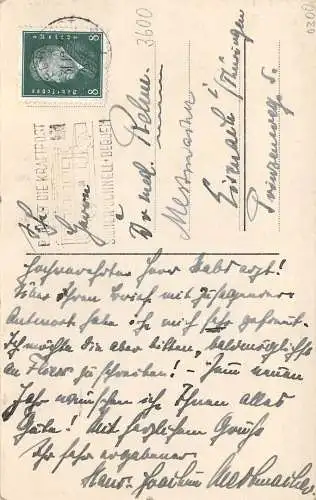 3600
0300
8 Deutsches Reich 8
DIE KRAFTPOST
SICHER SCHNELL BEQUEM
Herrn
Dr. med. Rehm.
Eisenach / Thüringen
Prinzenweg 5.
Hochverehrter Herr
Über Ihren Brief mit zusagender
Antwort habe ich mich sehr gefreut.
Ich möchte Sie aber bitten, baldmöglichst
an zu schreiben! – Zum neuen
Jahr wünschen ich Ihnen alles
Gute! Mit herzlichem Gruß
Ihr sehr ergebener
Hans-Joachim Mestmacher